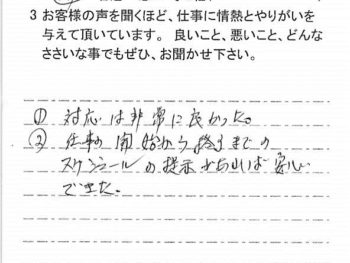 3 お客様の声を聞くほど、仕事に情熱とやりがいを
与えて頂いています。 良いこと、悪いこと、どんな
ささいな事でもぜひ、お聞かせ下さい。
① 対応は非常に良かった。
② 仕事の開始から終了までの
スケジュールの提示があれば安心
できた。